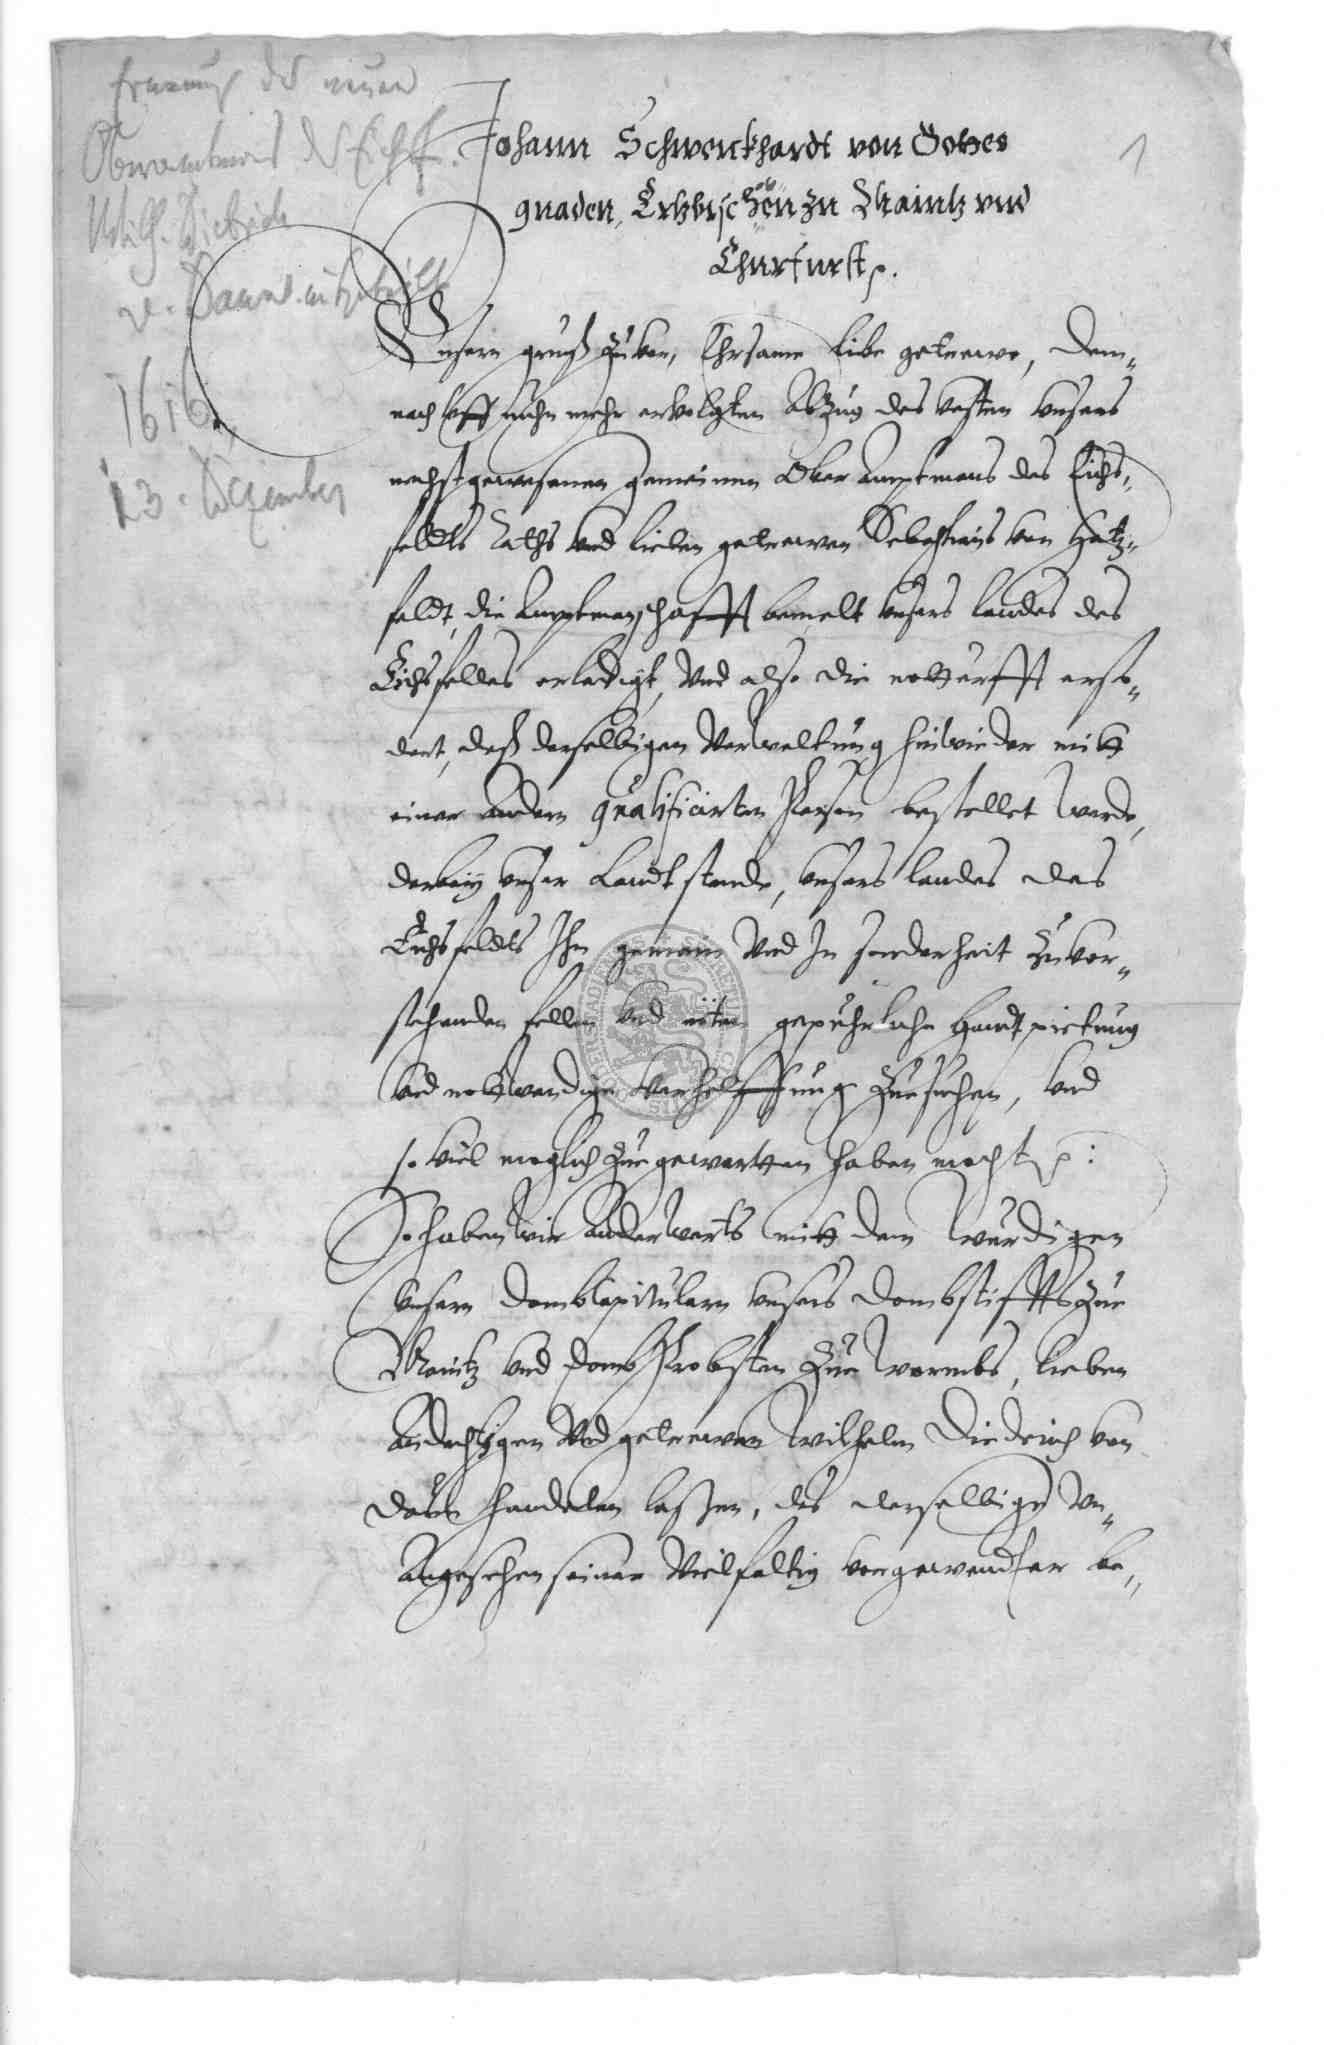 Ernennung des neuen
Oberamtmans d. Eichsf.
Wilh. Dietrich
v. Daun
1616
13. Dezember
1
Johann Schweickhardt von Gottes
gnaden, Ertzbischoff zu Maintz und
Churfurst p.
Unsern gruß zuvor, Ehrsame liebe getrewe, Dem-
nach uff nuhn mehr ervolgten Abzug des vesten unsers
nechstgewesenen gemeinen Ober Amptmans des Eichs-
feldts Raths und lieben getrewen Sebastians von Hatz-
feldt, die Amptmanschafft bemelt unsers landes des
Eichsfeldes erledigt, Und also die notturfft erfo-
dert, daß derselbigen Verwaltung hinwieder mitt
einer andern qualificirten Person bestellet werde,
darbey unser Landtstende, unsers landes des
Eichsfeldts Ihn gemein Und In sonderheit zuvor-
stehenden fellen und nöten gepührliche Handtpietung
und nottwendige Verhelffung zue suchen, und
so viel moglich zue gewartten haben mocht p:
So haben wir Anderwerts mitt dem wurdigen
unserm Dombcapitularn unsers Dombstiffts zue
Maintz und DombProbsten zue Wormbs, lieben
Andechtigen Und getrewen Wilhelm Diederich von
Daun handelen laßen, das derselbige Un-
Angesehen seiner Vielfaltig vorgewendter be-